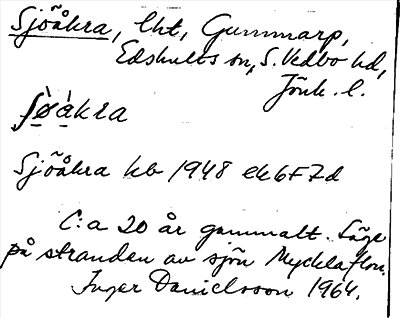 Sjöåkra, lht, Gummarp,
Edshults sn, S. Vedbo hd,
Jönk. l.
ʃø̀àkra
Sjöåkra kb 1948 ek6F7d
C:a 20 år gammalt. Läge
på stranden av sjön Mycklaflon.
Inger Danielsson 1964.